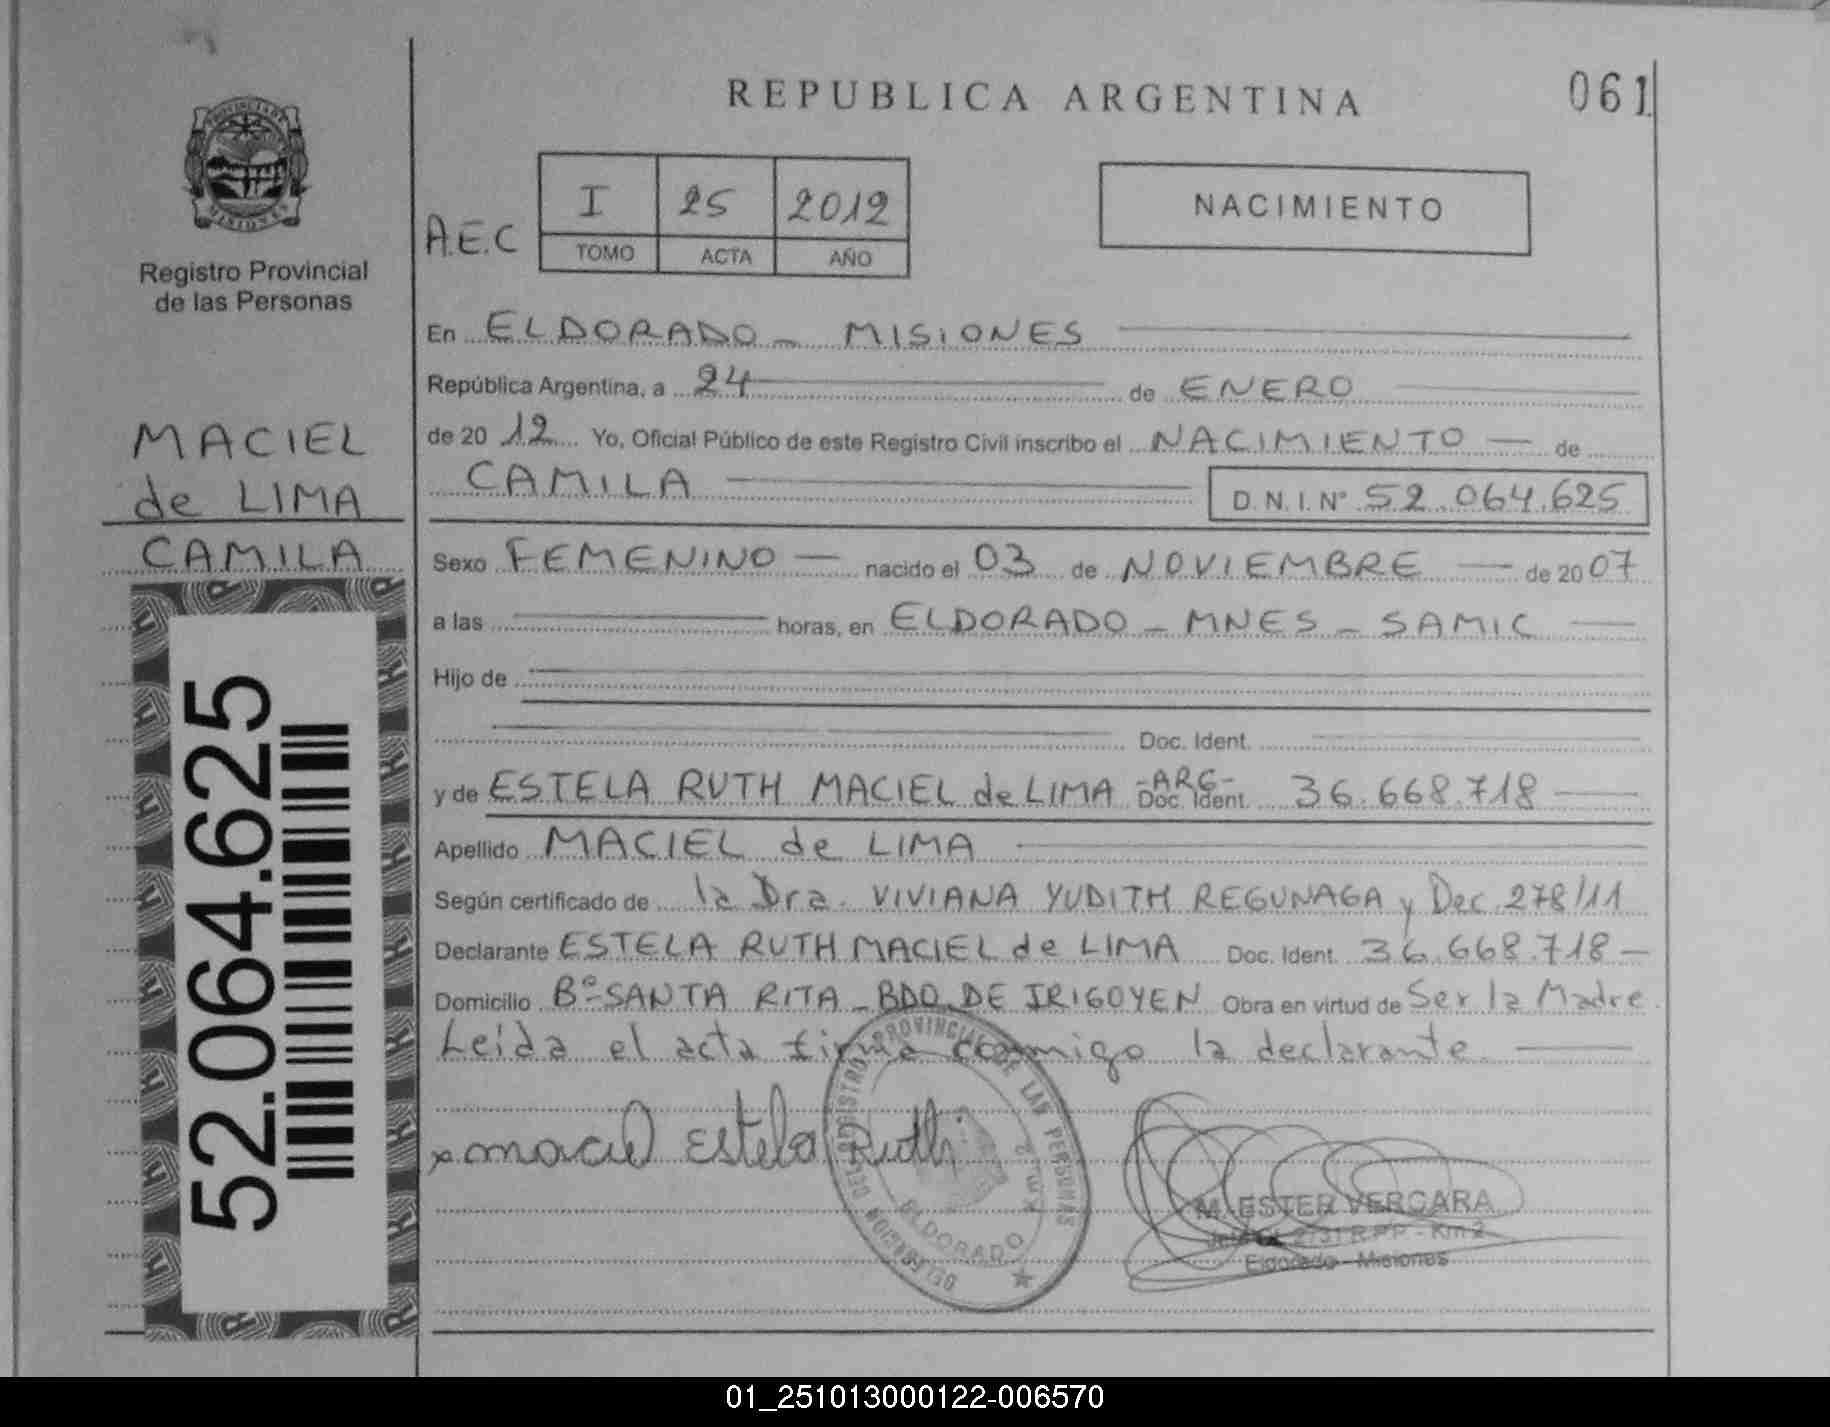 REPUBLICA ARGENTINA
061
PROVINCIA DE
MISIONES
Registro Provincial
de las Personas
A.E.C
I 25 2012
TOMO ACTA AÑO
NACIMIENTO
En ELDORADO - MISIONES
República Argentina, a 24 de ENERO
de 2012 Yo, Oficial Público de este Registro Civil inscribo el NACIMIENTO de
CAMILA D.N.I.Nº 52.064.625
MACIEL
de LIMA
CAMILA
52.064.625
Sexo FEMENINO nacido el 03 de NOVIEMBRE de 2007
a las horas, en ELDORADO - MNES - SAMIC
Hijo de
Doc. Ident.
y de ESTELA RUTH MACIEL de LIMA -ARG- Doc. Ident. 36.668.718
Apellido MACIEL de LIMA
Según certificado de la Dra. VIVIANA YUDITH REGUNAGA y Dec. 278/11
Declarante ESTELA RUTH MACIEL de LIMA Doc. Ident. 36.668.718
Domicilio Bº SANTA RITA - BDO. DE IRIGOYEN Obra en virtud de Ser la Madre
Leida el acta firma conmigo la declarante.
x maciel Estela Ruth
DELEGACION DEL REGISTRO PROVINCIAL DE LAS PERSONAS
ELDORADO
M. ESTER VERGARA
2731 R.P.P - Km 2
Eldorado - Misiones
01_251013000122-006570